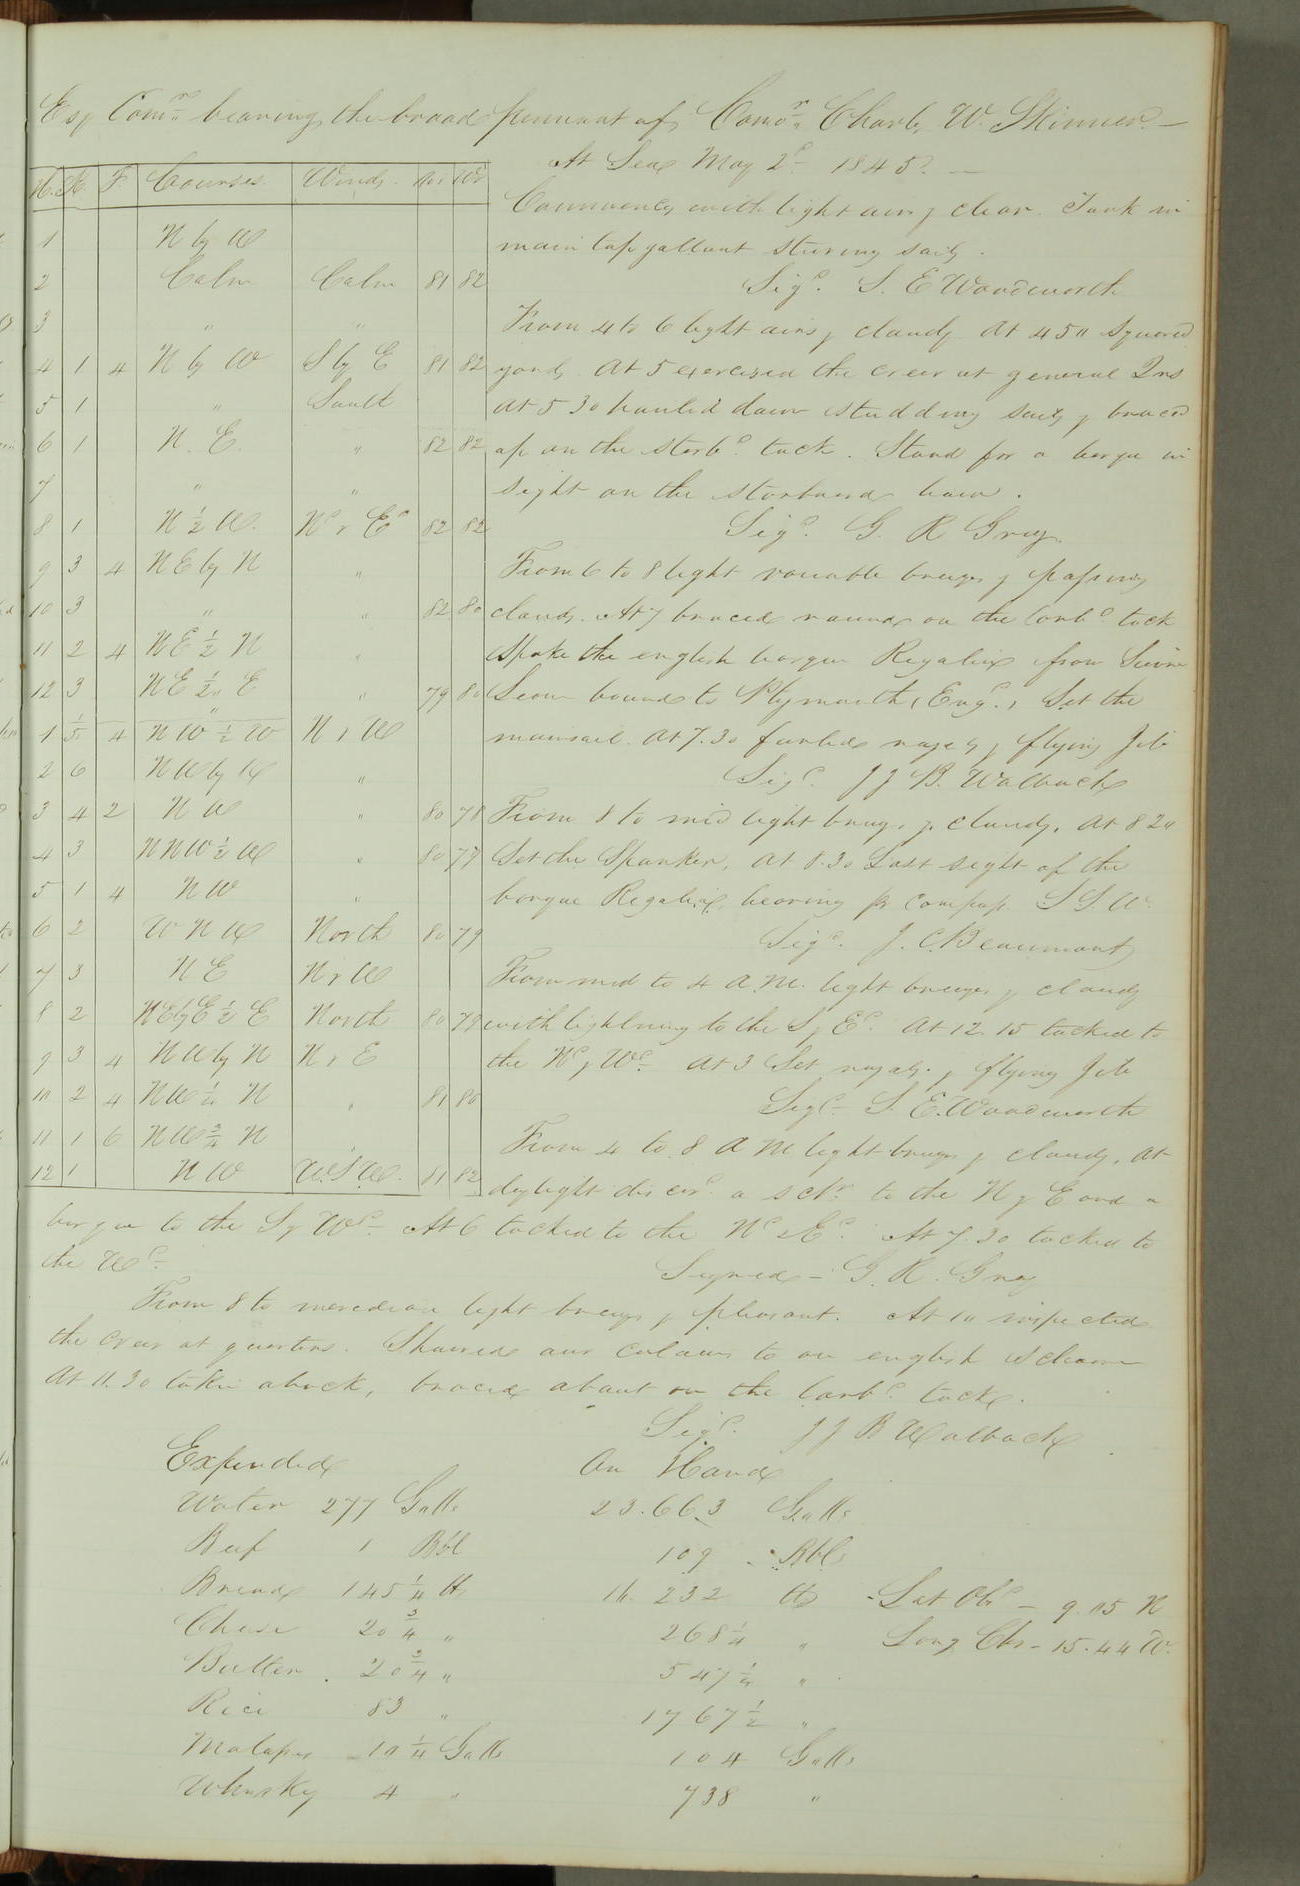 Esq Comr. bearing the broad pennant of Comor. Charls. W. Skinner. —
At Sea May 2d 1845. —
H. K. F. Courses. Winds. Air Wr
1 N by W
2 Calm Calm 81 82
3 " "
4 1 4 N by W S by E 81 82
5 1 " South
6 1 N. E. " 82 82
7 " "
8 1 N ½ W. Nd & Ed 82 82
9 3 4 NE by N "
10 3 " " 82 80
11 2 4 NE ½ N "
12 3 NE ½ E " 79 80
1 5 4 NW ½ W N & W
2 6 NW by W "
3 4 2 NW " 80 78
4 3 NNW ½ W " 80 79
5 1 4 NW "
6 2 WNW North 80 79
7 3 NE N & W
8 2 NE by E ½ E North 80 79
9 3 4 NW by N N & E
10 2 4 NW ¼ N " 81 80
11 1 6 NW ¾ N "
12 1 NW W.S.W. 81 82
Commences with light airs & clear. Took in
main top gallant steering sails.
Sigd. S. E Woodworth
From 4 to 6 light airs & cloudy At 4 50 squared
yards. At 5 exercised the crew at general Qrs
At 5 30 hauled down studding sails & braced
up on the starbd. tack. Stood for a barque in
sight on the starboard bow.
Sigd. G. R Gray.
From 6 to 8 light variable breezes & passing
clouds. At 7 braced round on the larbd. tack
Spoke the english barque Regalia from Sierra
Leone bound to Plymouth, Engd., Set the
mainsail. At 7.30 furled royals & flying Jib
Sigd. J J B. Walback
From 8 to mid light breezes & cloudy. At 8 20
Set the Spanker, At 8.30 Lost sight of the
barque Regalia, bearing pr compass S S. W.
Sigd. J. C. Beaumont
From mid to 4 A.M. light breezes & cloudy
with lightning to the S & Ed. At 12 15 tacked to
the Nd & Wd. At 3 Set royals & flying Jib
Sigd — S. E. Woodworth
From 4 to 8 A M light breezes & cloudy. At
daylight discovd. a schr. to the N & E and a
barque to the S & Wd. At 6 tacked to the Nd & Ed. At 7.30 tacked to
the Wd.
Signed — G. R. Gray
From 8 to meredian light breezes & pleasant. At 10 inspected
the crew at quarters. Showed our colours to an english schooner
At 11.30 taken aback, braced about on the larbd. tack.
Sigd. J J B Walback
Expended On Hand
Water 277 Galls 23.663 Galls
Beef 1 Bbl 109 Bbls
Bread 145 ¼ lb 16.232 lb Lat Obd — 9.05 N
Cheese 20 ¾ " 268 ¼ " Long Chr — 15.44 W.
Butter 20 ¾ " 547 ¼ "
Rice 83 " 1767 ½ "
Molasses 10 ¼ Galls 104 Galls
Whisky 4 " 738 "